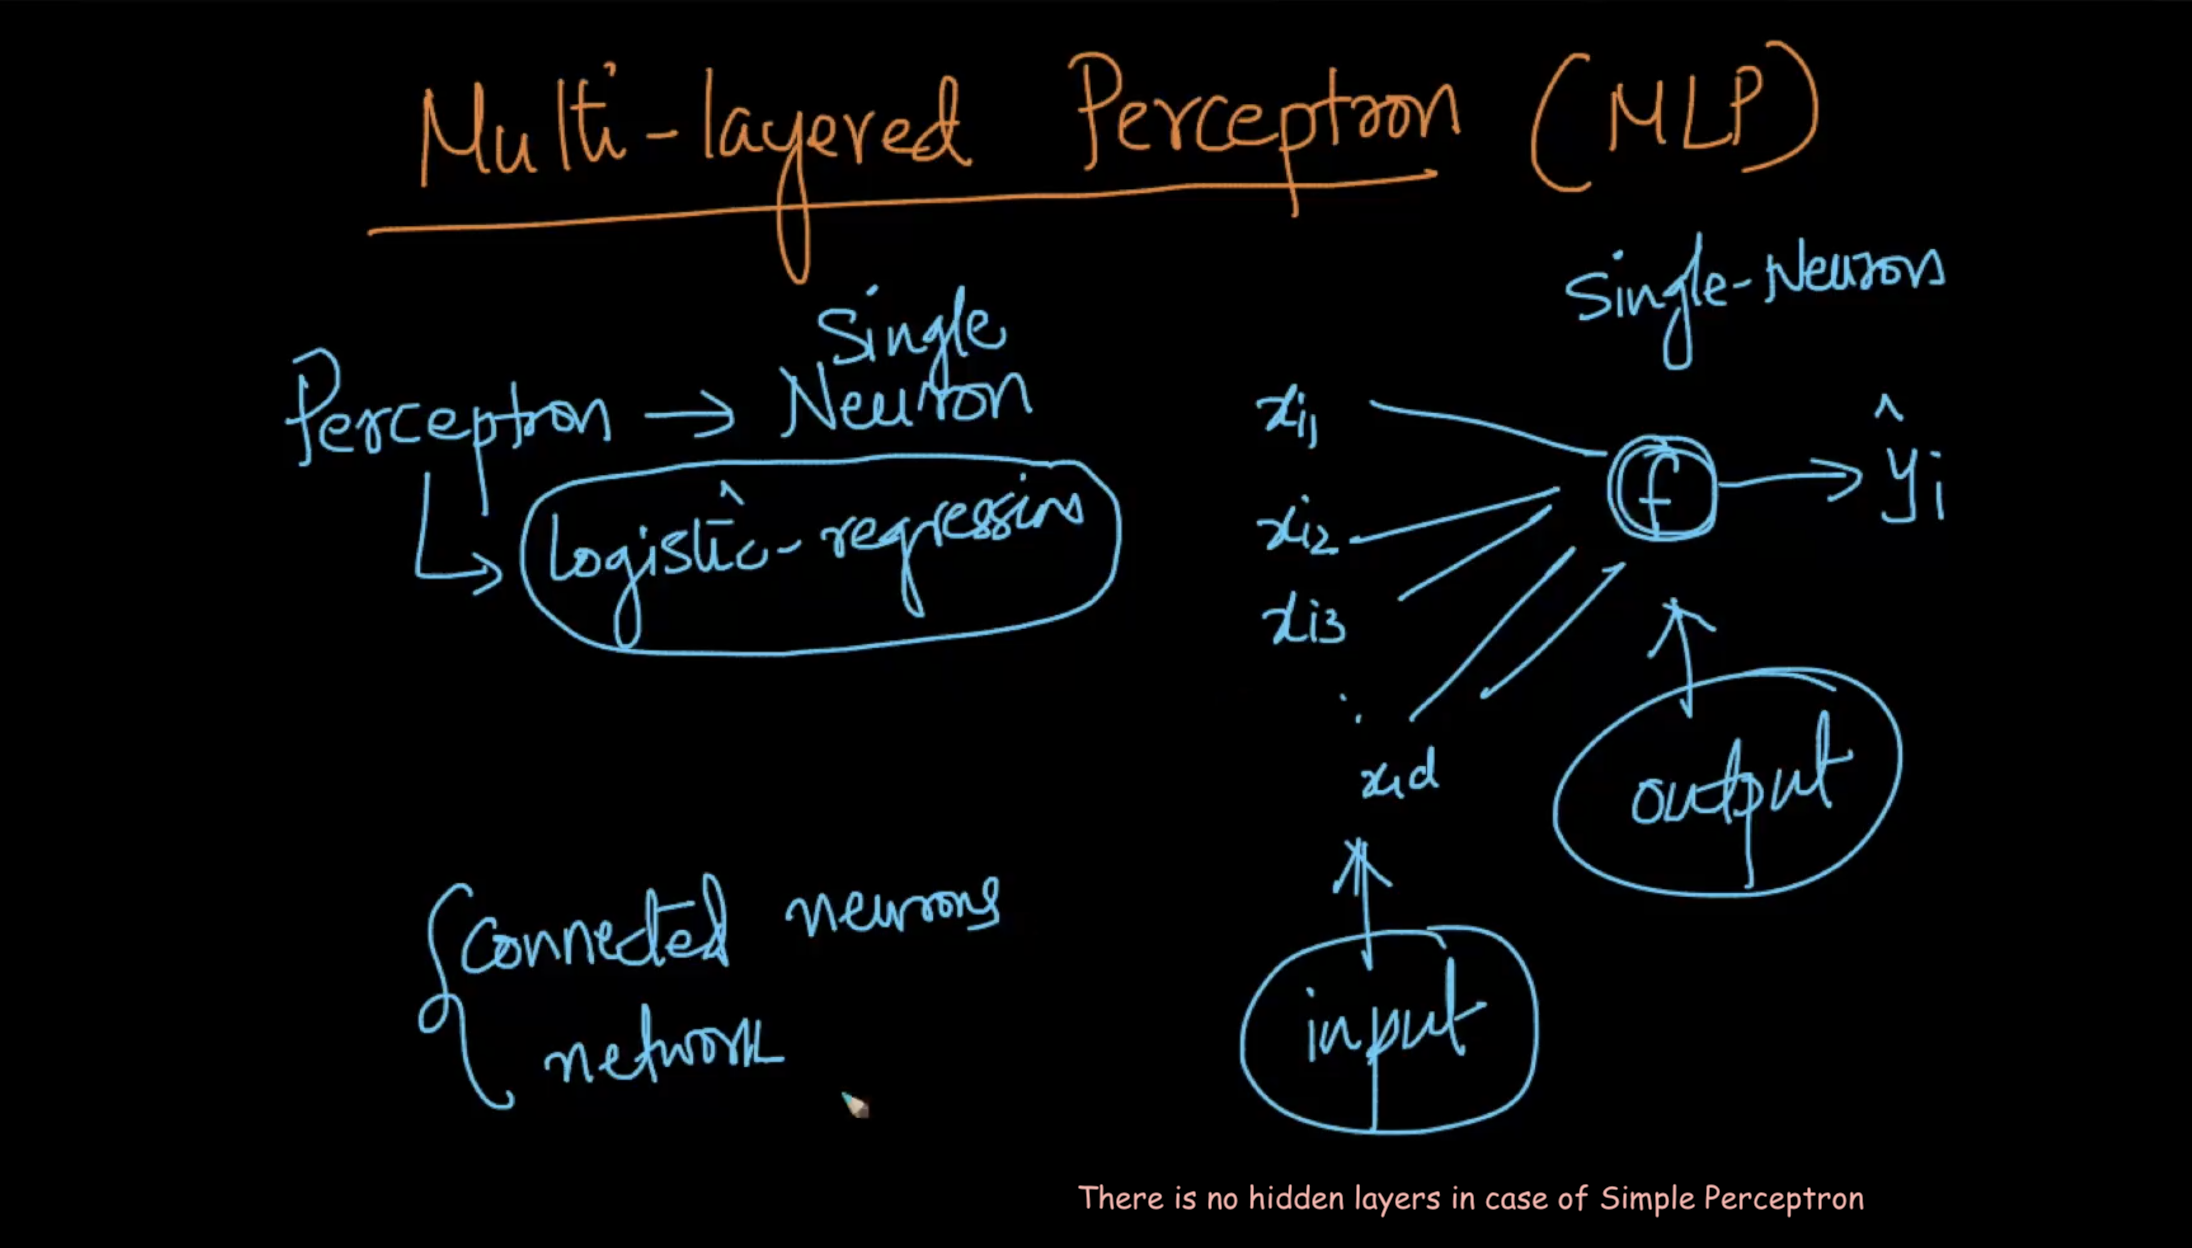 Multi-layered Perceptron (MLP)
Single
Perceptron → Neuron
logistic-regression
connected neurons
network
Single-Neuron
xi1
xi2
xi3
xid
f
ŷi
output
input
There is no hidden layers in case of Simple Perceptron